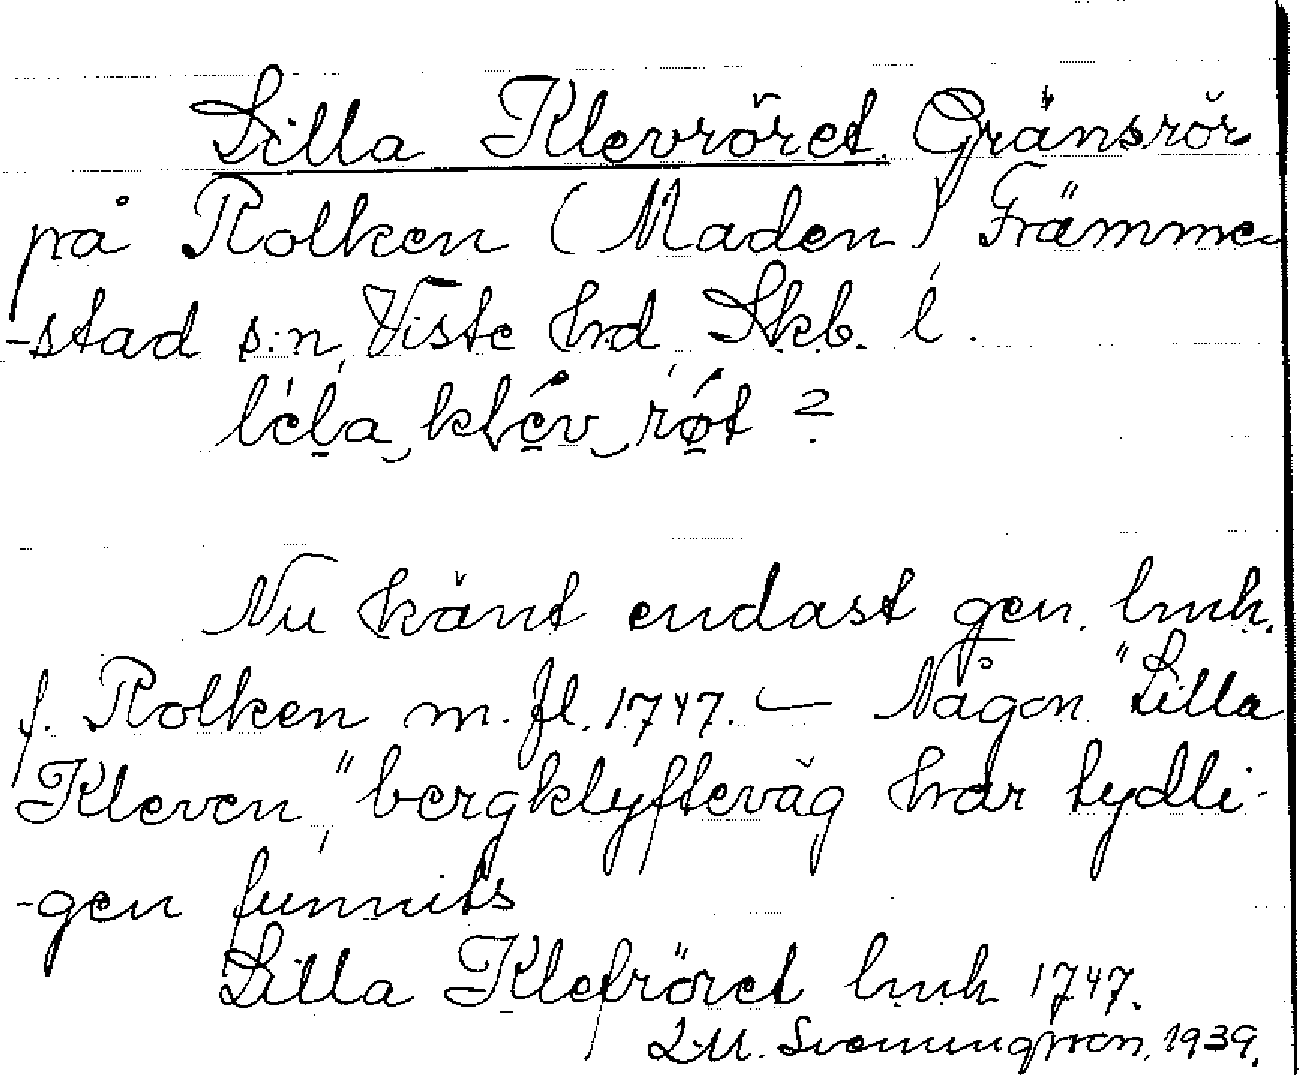 Lilla Klevröret. Gränsrör
på Rolken (Maden) Främme-
-stad s:n, Viste hrd, Skb. l.
lela klev røt ?
Nu känt endast gen. lmh.
f. Rolken m. fl. 1747. — Någon "Lilla
Kleven," bergklyftevåg har tydli-
-gen funnits
Lilla Klefröret lmh 1747.
L.M. Svenungsson, 1939.